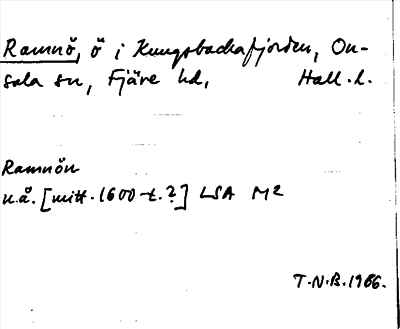 Ramnö, ö i Kungsbackafjorden, On-
sala sn, Fjäre hd, Hall. l.
Ramnön
u.å. [mitt. 1600-t.?] LSA M2
T.N.B. 1966.